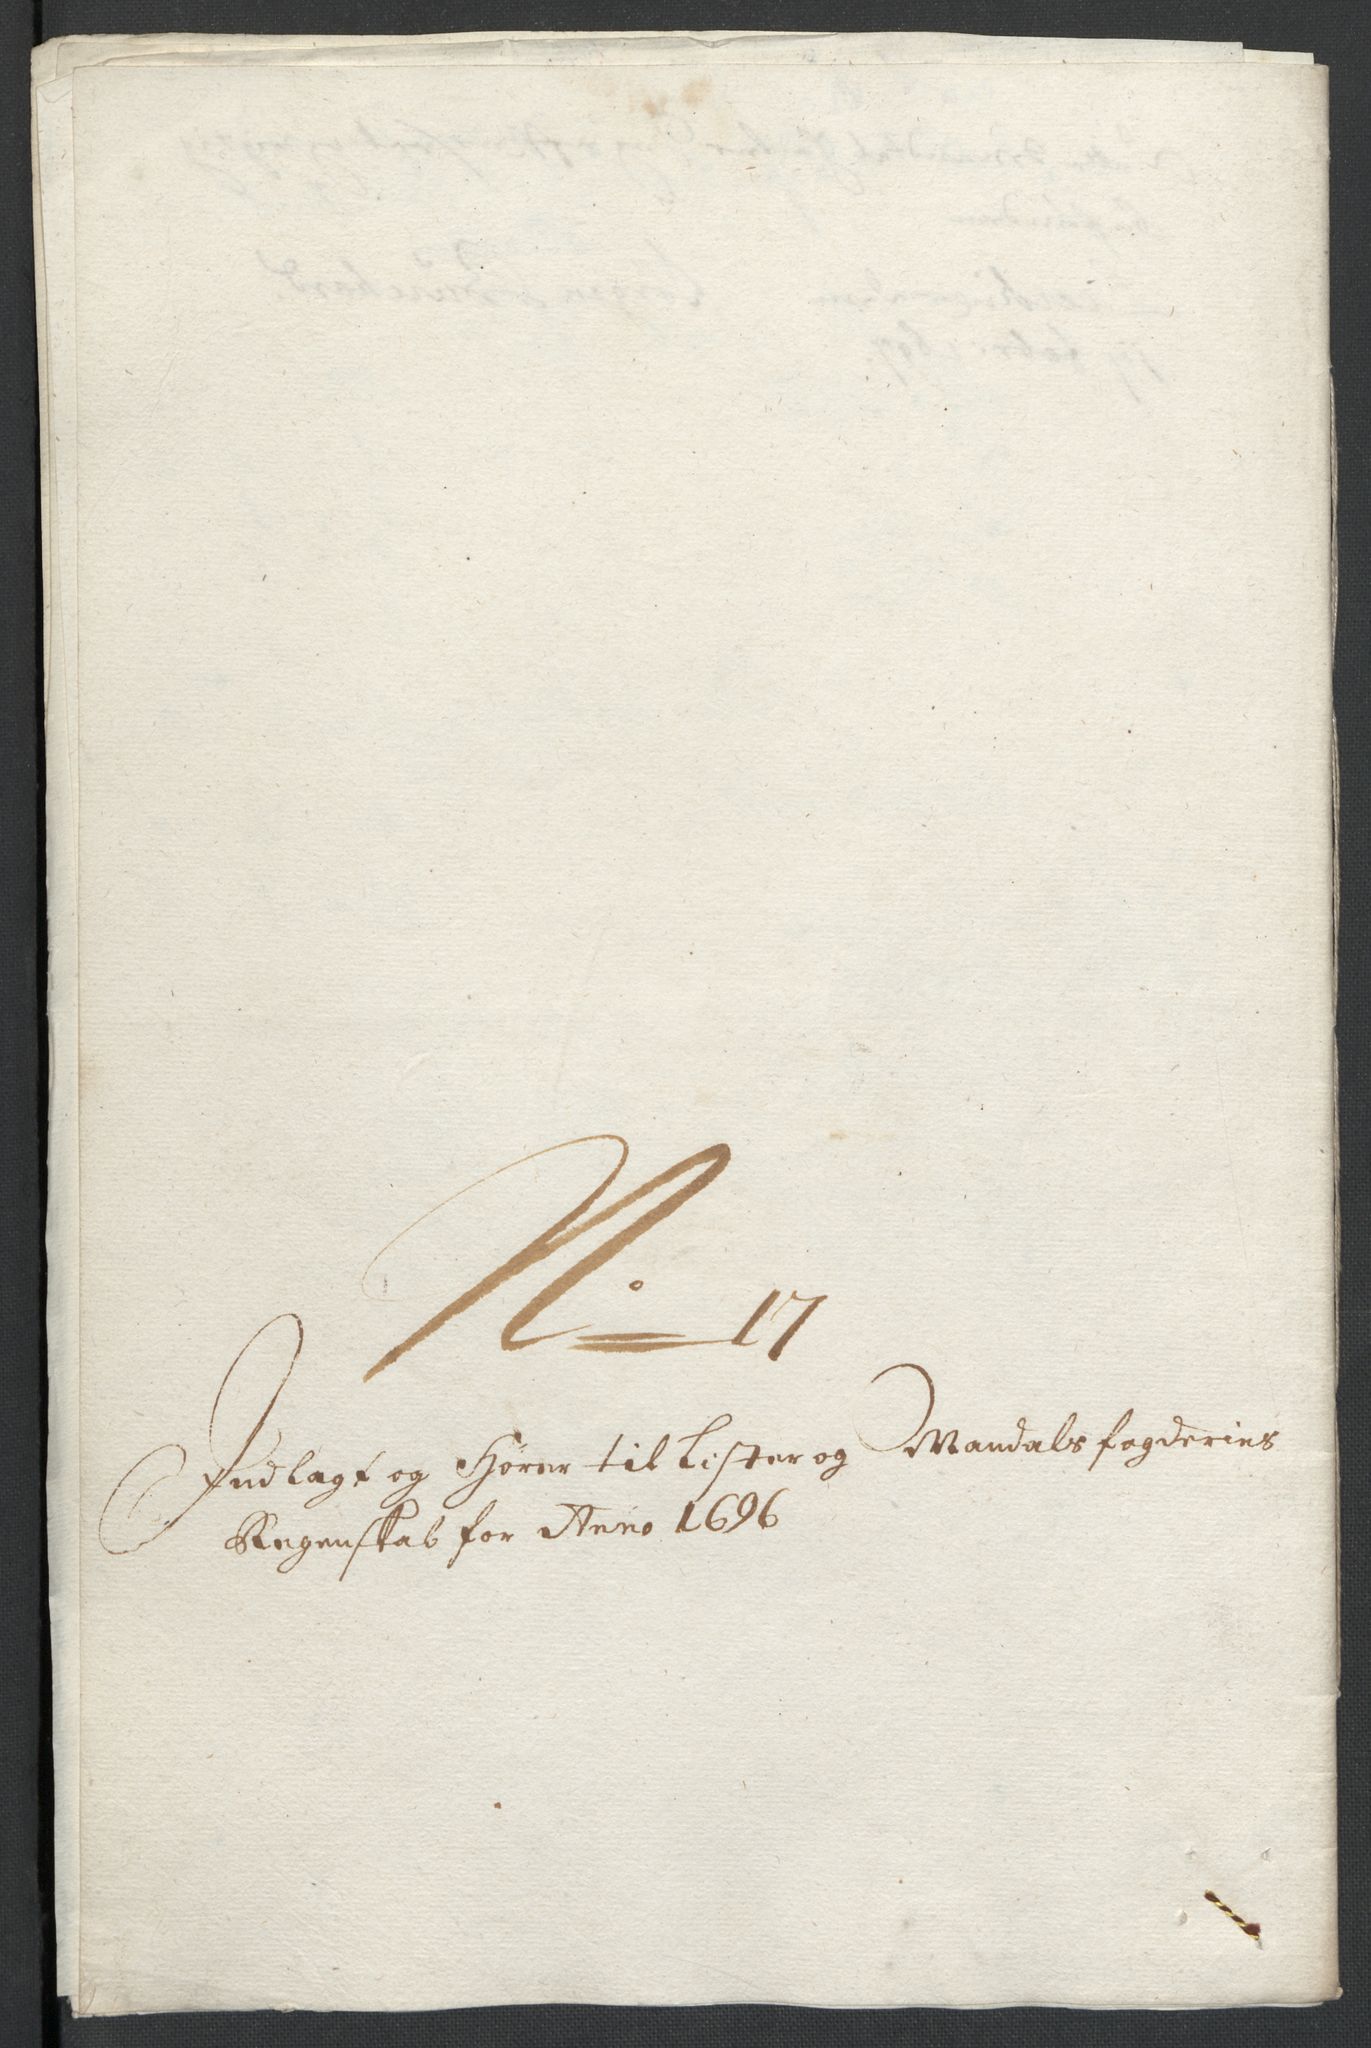 No 17
Indlagt og Hører til Lister og Mandals fogderies
Regenskab for Anno 1696